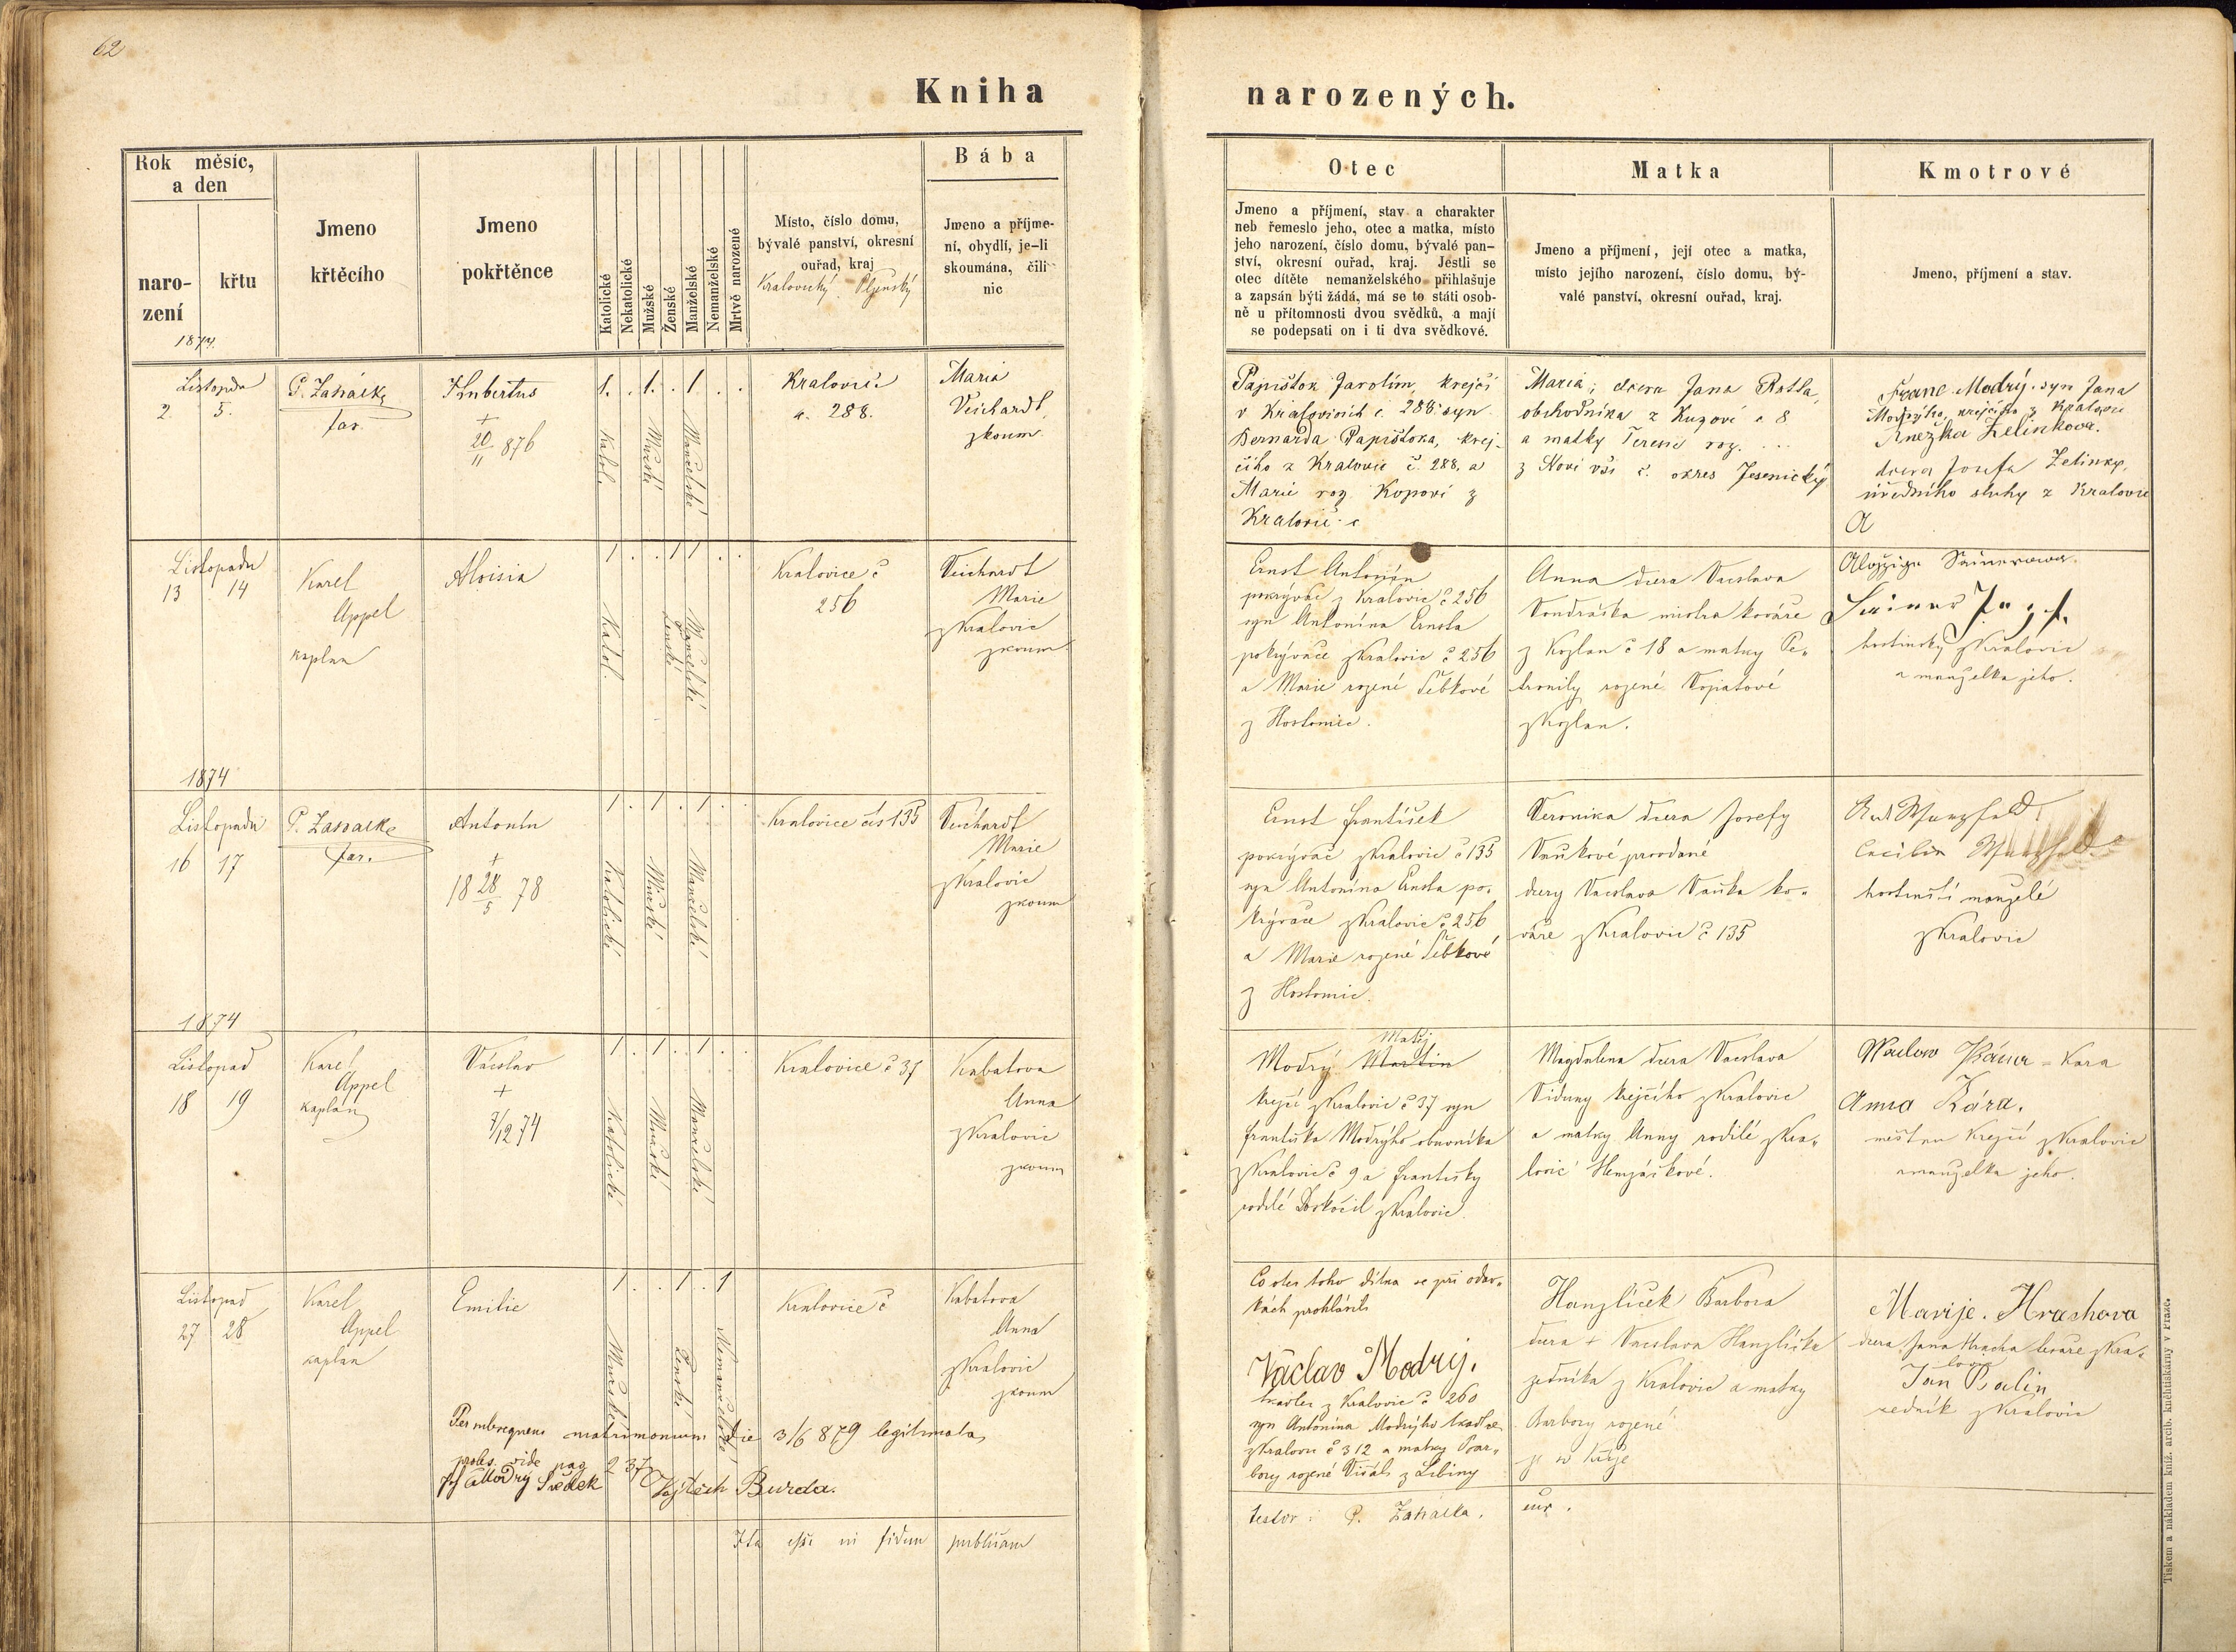 62
Kniha
narozených.
Rok měsíc,
a den
naro-
zení
křtu
1874.
Jmeno
křtěcího
Jmeno
pokřtěnce
Katolické
Nekatolické
Mužské
Ženské
Manželské
Nemanželské
Mrtvě narozené
Místo, číslo domu,
bývalé panství, okresní
ouřad, kraj
Kralovický Plzenský
Bába
Jmeno a příjme-
ní, obydlí, je-li
skoumána, čili
nic
Otec
Jmeno a příjmení, stav a charakter
neb řemeslo jeho, otec a matka, místo
jeho narození, číslo domu, bývalé pan-
ství, okresní ouřad, kraj. Jestli se
otec dítěte nemanželského přihlašuje
a zapsán býti žádá, má se to státi osob-
ně u přítomnosti dvou svědků, a mají
se podepsati on i ti dva svědkové.
Matka
Jmeno a příjmení, její otec a matka,
místo jejího narození, číslo domu, bý-
valé panství, okresní ouřad, kraj.
Kmotrové
Jmeno, příjmení a stav.
Listopadu
2. 5.
P. Zahálka
far.
Hubertus
+
20/11 876
1. . 1. . 1 . .
Katol.
Mužské
Manželské
Kralovic
č. 288.
Maria
Veichardt
zkoum.
Papištok Jarolím, krejčí
v Kralovicích č. 288. syn
Bernarda Papištoka, krej-
čího z Kralovic č. 288, a
Marie roz. Kopové z
Kralovic č
Maria, dcera Jana
obchodníka z č 8
a matky Terezie roz. ...
z Nové vsi č. okres Jesenický
Franc Modrý, syn Jana
Modrýho, krejčího z Kralovic
Anežka Zelinkova.
dcera Josefa Zelinky,
úředního sluhy z Kralovic
A
Listopadu
13 14
Karel
Appel
kaplan
Aloisia
1 . . 1 1 . .
Katol.
Ženské
Manželské
Kralovice č
256
Veichardt
Marie
z Kralovic
zkoum
Ernst Antonín
pokrývač z Kralovic č 256
syn Antonína Ernsta
pokrývače z Kralovic č 256
a Marie rozené Šebkové
z Hostomic.
Anna dcera Vácslava
Vondráška mistra kováře
z Kozlan č 18 a matky Pe-
tronily rozené Vopatové
z Kozlan.
hostinský z Kralovic
a manželka jeho.
1874
Listopadu
16 17
P. Zahálka
far.
Antonín
+
18 28/5 78
1 . 1 . 1 . .
Katolické
Mužské
Manželské
Kralovice čís 135
Veichardt
Marie
z Kralovic
zkoum
Ernst František
pokrývač z Kralovic č 135
syn Antonína Ernsta po-
krývače z Kralovic č 256
a Marie rozené Šebkové
z Hostomic.
Veronika dcera Josefy
Vaňkové provdané
dcery Vácslava Vaňka ko-
váře z Kralovic č 135
hostinští manželé
z Kralovic
1874
Listopad
18 19
Karel
Appel
kaplan
Vácslav
+
7/12 74
1 . 1 . 1 . .
Katolické
Mužské
Manželské
Kralovice č 37
Kabatova
Anna
z Kralovic
zkoum
Matěj
Modrý Martin
krejčí z Kralovic č 37 syn
Františka Modrýho obuvníka
z Kralovic č 9 a Františky
rodilé Doskočil z Kralovic.
Magdalena dcera Vácslava
Viduny krejčího z Kralovic
a matky Anny rodilé z Kra-
lovic Henzáškové.
Kára
Anna Kára.
měšťan krejčí z Kralovic
a manželka jeho.
Listopad
27 28
Karel
Appel
kaplan
Emilie
1 . . 1 . 1
Ženské
Nemanželské
Kralovice č
Kabatova
Anna
z Kralovic
zkoum
Per subsequens matrimonium die 3/6 879 legitimata
proles. vide pag 237
Modrý Svědek Vojtěch Burda.
Ita esse in fidem publicam
Co otec toho dítka se při odav-
kách prohlásil
Václav Modrý.
tkadlec z Kralovic č 260
syn Antonína Modrýho tkadlce
z Kralovic č 312 a matky Bar-
bory rozené Višáh z Libiny
testor: P. Zahálka.
Hanzlíček Barbora
dcera + Vácslava Hanzlíčka
zedníka z Kralovic a matky
Barbory rozené
Marije. Hrachova
dcera Jana Hracha kováře z Kra-
lovic
Jan Palin
zedník z Kralovic
Tiskem a nákladem kníž. arcib. kněhtiskárny v Praze.